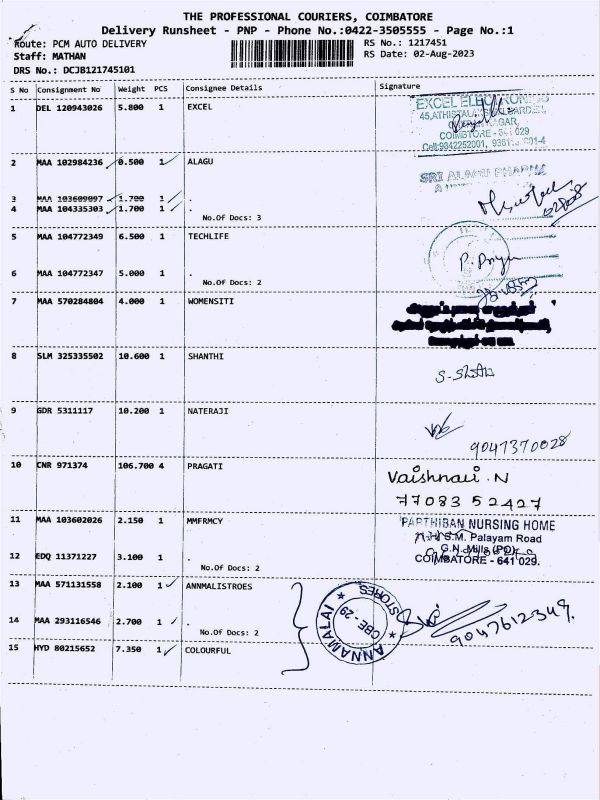 THE PROFESSIONAL COURIERS, COIMBATORE
Delivery Runsheet - PNP - Phone No.:0422-3505555 - Page No.:1
Route: PCM AUTO DELIVERY
RS No.: 1217451
Staff: MATHAN
RS Date: 02-Aug-2023
DRS No.: DCJB121745101
S No Consignment No Weight PCS Consignee Details Signature
1 DEL 120943026 5.800 1 EXCEL
EXCEL
COIMBTORE - 641 029
Cell:9842252001,
2 MAA 102984236 0.500 1 ALAGU
SRI ALAGU PHARMA
3 MAA 103609097 1.700 1 .
4 MAA 104335303 1.700 1 .
No.Of Docs: 3
5 MAA 104772349 6.500 1 TECHLIFE
P. Priya
6 MAA 104772347 5.000 1 .
No.Of Docs: 2
7 MAA 570284804 4.000 1 WOMENSITI
8 SLM 325335502 10.600 1 SHANTHI
9 GDR 5311117 10.200 1 NATERAJI
9047370028
10 CNR 971374 106.700 4 PRAGATI
Vaishnavi. N
77083 52427
11 MAA 103602026 2.150 1 MMFRMCY
PARTHIBAN NURSING HOME
S.M. Palayam Road
G.N. Mills (PO),
COIMBATORE - 641 029.
12 EDQ 11371227 3.100 1 .
No.Of Docs: 2
13 MAA 571131558 2.100 1 ANNMALISTROES
ANNAMALAI STORES
CBE - 29
9047612349.
14 MAA 293116546 2.700 1 .
No.Of Docs: 2
15 HYD 80215652 7.350 1 COLOURFUL